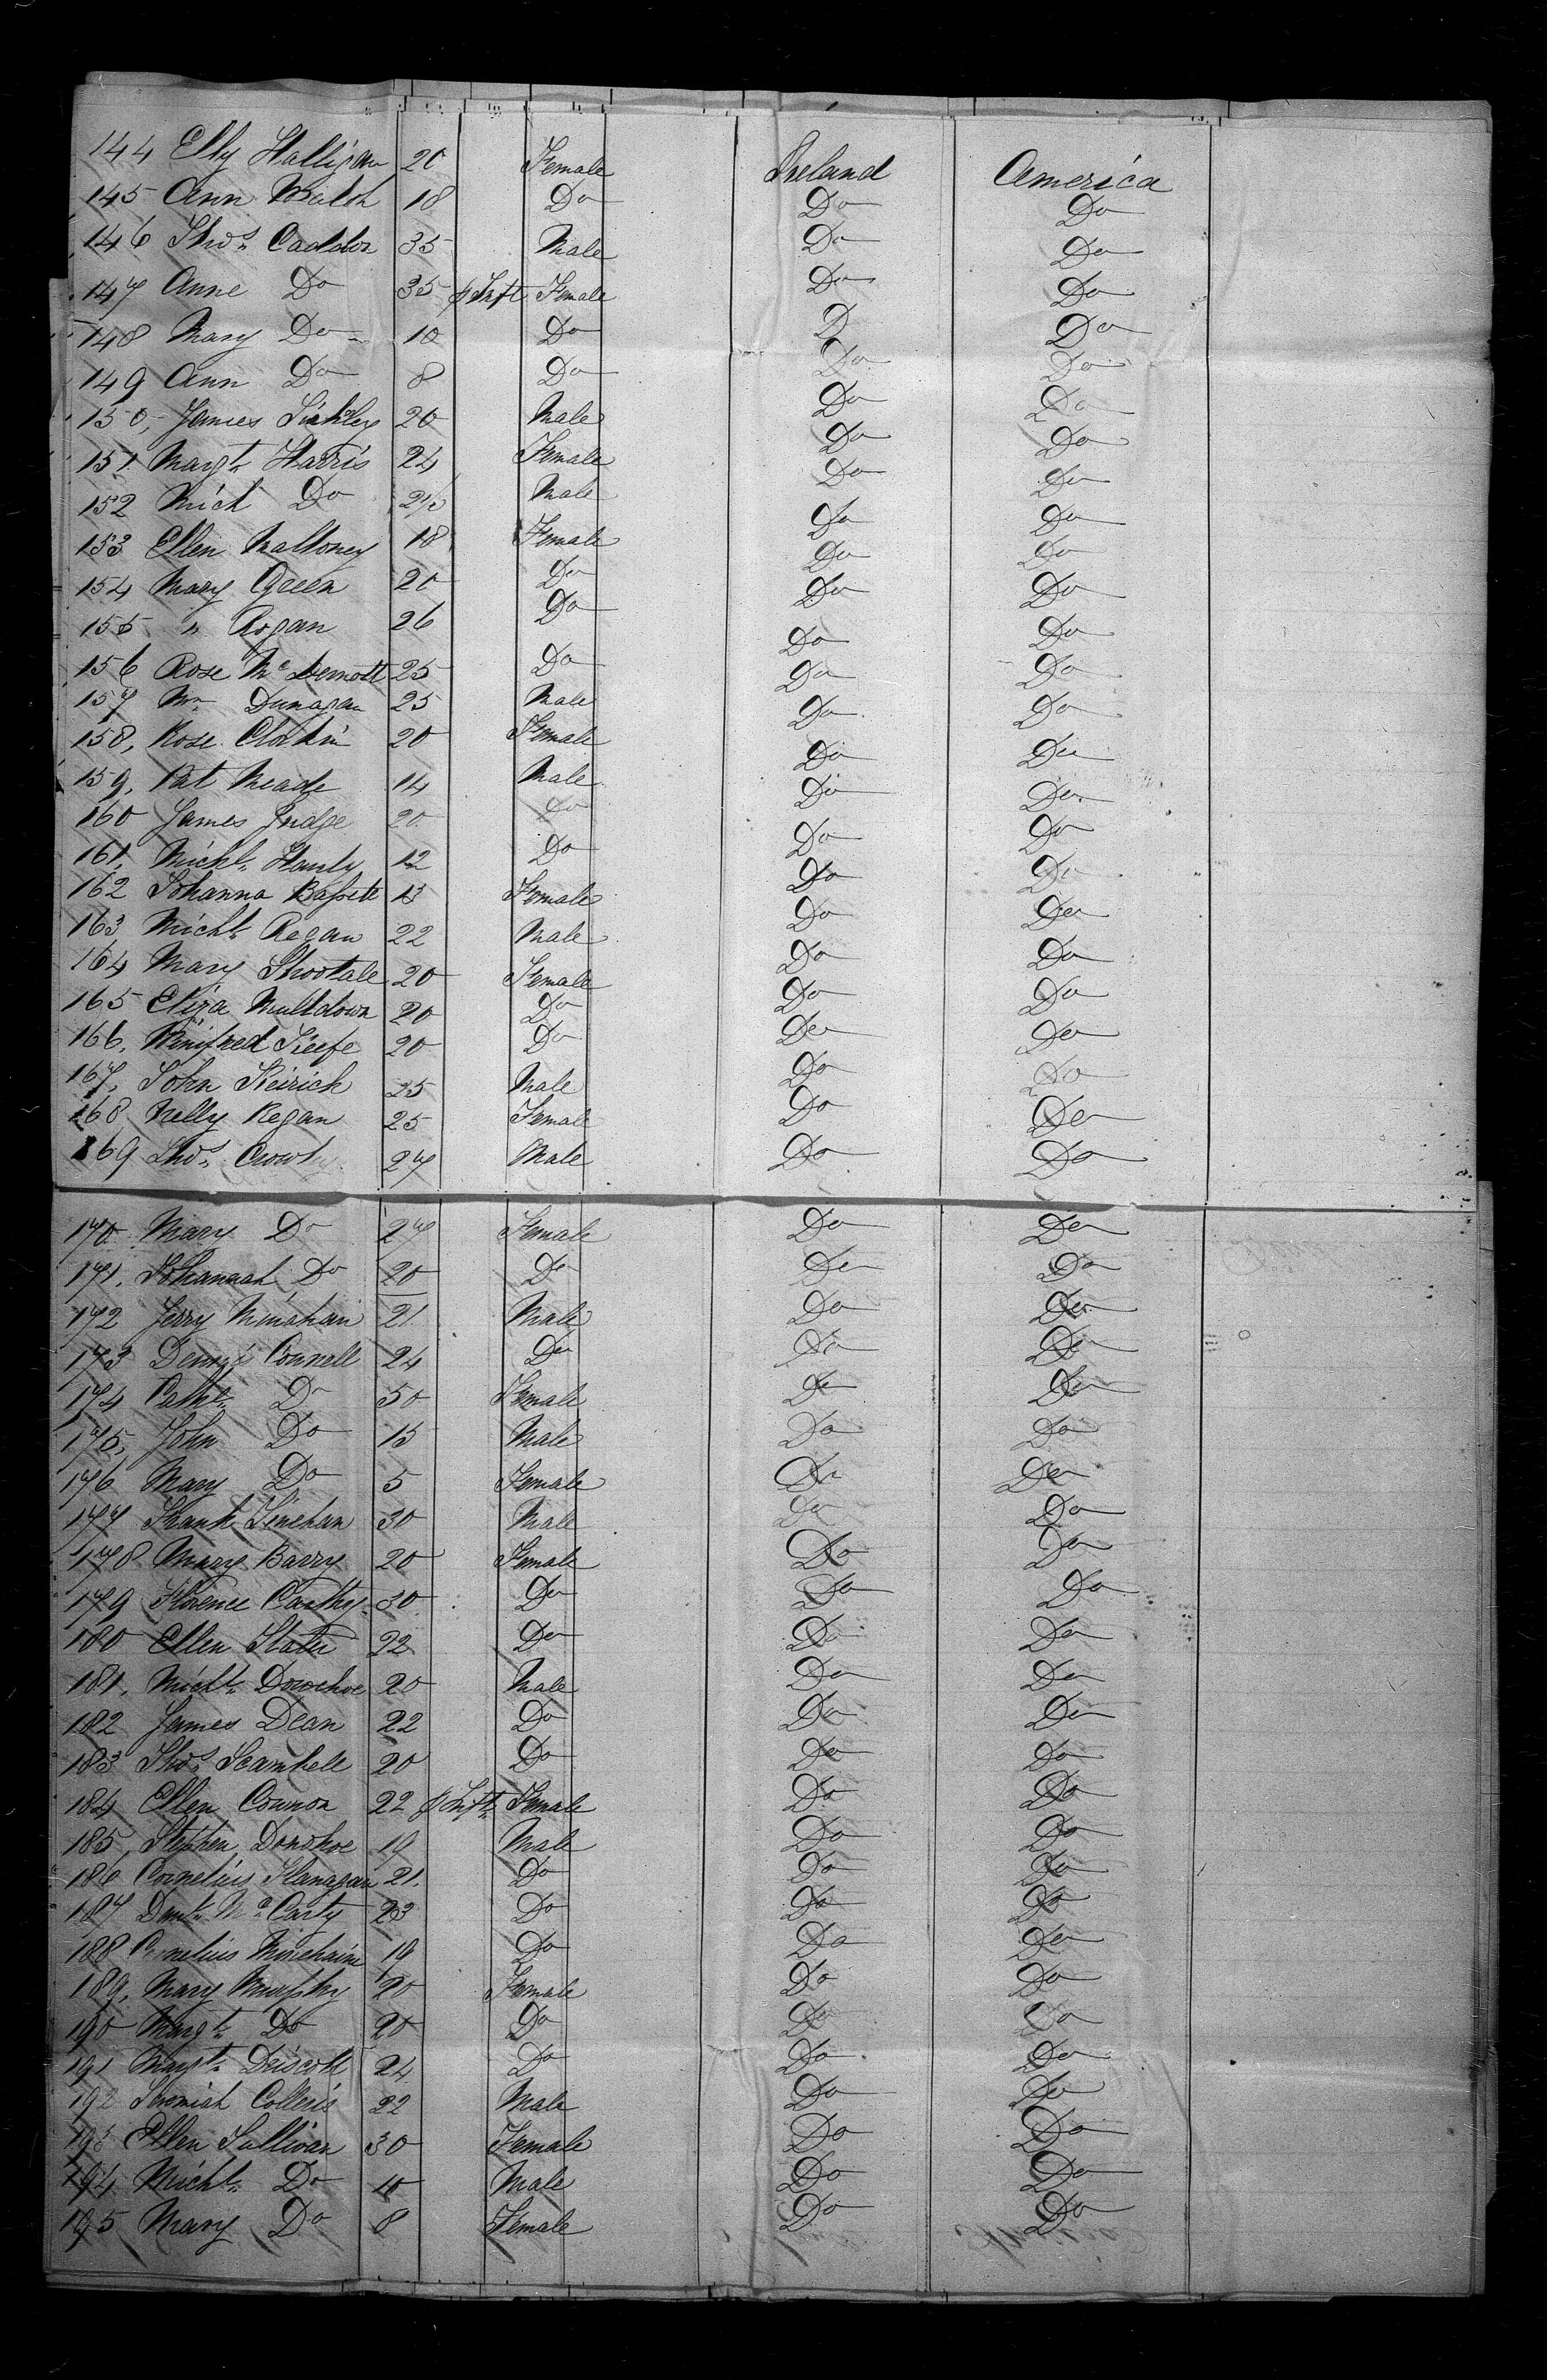 144 Elly Halligan 20 Female Ireland America
145 Ann Walsh 18 Do Do Do
146 Thos. Caddon 35 Male Do Do
147 Anne Do 35 & Inft Female Do Do
148 Mary Do 10 Do D Do
149 Ann Do 8 Do Do Do
150, James 20 Male Do Do
151 Margt. Harris 24 Female Do Do
152 Mich Do Male Do Do
153 Ellen Malloney 18 Female Do Do
154 Mary Green 20 Do Do Do
155 " Rogan 26 Do Do Do
156 Rose Mc Dermott 25 Do Do Do
157 Wm Dunagan 25 Male Do Do
158, Rose 20 Female Do Do
159, Pat Meade 14 Male Do Do
160 James Judge 20 Do Do Do
161, Michl. Hanly 12 Do Do Do
162 Johanna Bassett 13 Female Do Do
163 Michl. Regan 22 Male Do Do
164 Mary 20 Female Do Do
165 Eliza Muldown 20 Do Do Do
166, Winifred Keefe 20 Do Do Do
167, John 25 Male Do Do
168 Nelly Regan 25 Female Do Do
169 Thos. 27 Male Do Do
170 Mary Do 27 Female Do Do
171, Johannah Do 20 Do Do Do
172 Jerry Minahain 21 Male Do Do
173 Dennis Connell 24 Do Do Do
174 Cathe. Do 50 Female Do Do
175, John Do 15 Male Do Do
176 Mary Do 5 Female Do Do
177 Frank Linehan 30 Male Do Do
178 Mary Barry 20 Female Do Do
179 Florence Carthy 30 Do Do Do
180 Ellen Slater 22 Do Do Do
181, Michl. Donohoe 20 Male Do Do
182 James Dean 22 Do Do Do
183 Thos. Scambell 20 Do Do Do
184 Ellen Connor 22 & Inft. Female Do Do
185, Stephen Donohoe 19 Male Do Do
186 Cornelius Flanagan 21 Do Do Do
187 Danl. Mc Carty 23 Do Do Do
188 Cornelius Minehaine 19 Do Do Do
189, Mary Murphy 20 Female Do Do
190 Margt. Do 20 Do Do Do
191 Margt. Driscoll 24 Do Do Do
192 Jeremiah Colleris 22 Male Do Do
193 Ellen Sullivan 30 Female Do Do
194 Michl. Do 10 Male Do Do
195 Mary Do 8 Female Do Do